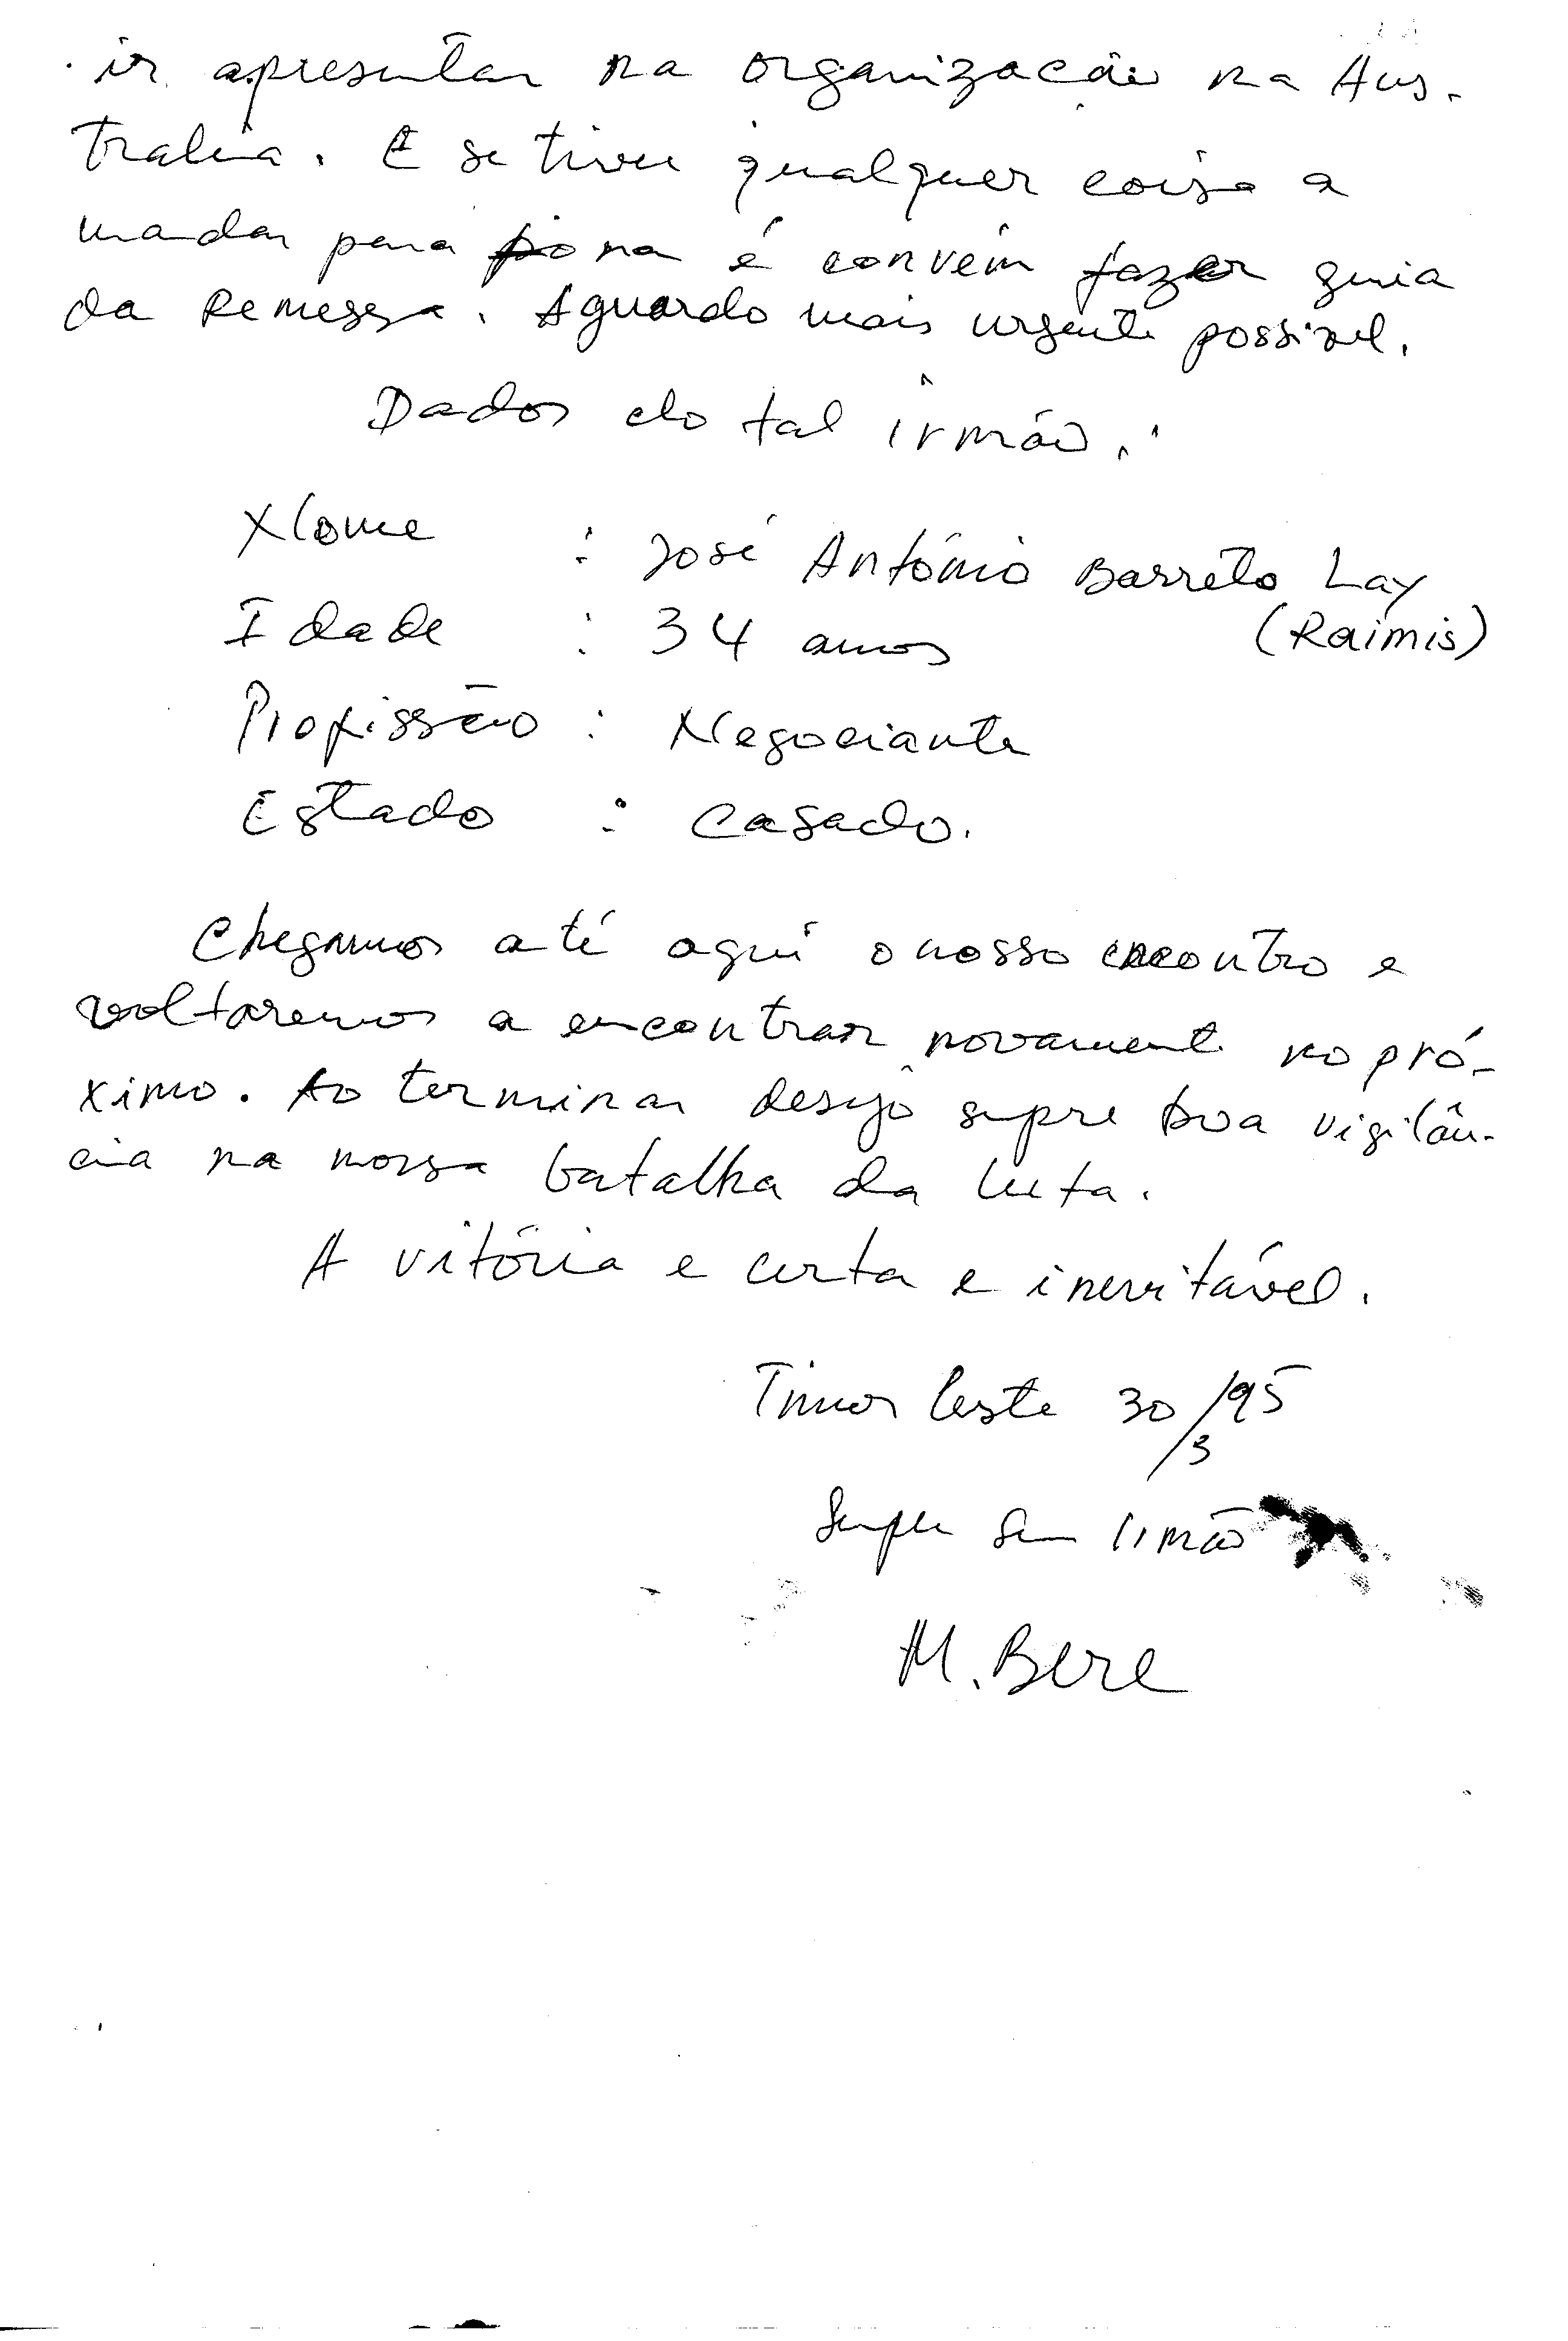 ir apresentar na organização na Aus-
tralia. E se tiver qualquer coisa a
mandar para na é convém fazer guia
da Remessa. Aguardo mais urgente possivel.
Dados do tal irmão:
Nome : José António Barreto Lay
(Raimis)
Idade : 34 anos
Profissão : Negociante
Estado : Casado.
Chegamos até aqui o nosso encontro e
voltaremos a encontrar novamente no pró-
ximo. Ao terminar desejo sempre boa vigilân-
cia na nossa batalha da luta.
A vitória e certa e inevitável.
Timor Leste 30/3/95
Sempre Seu irmão
M. Bere